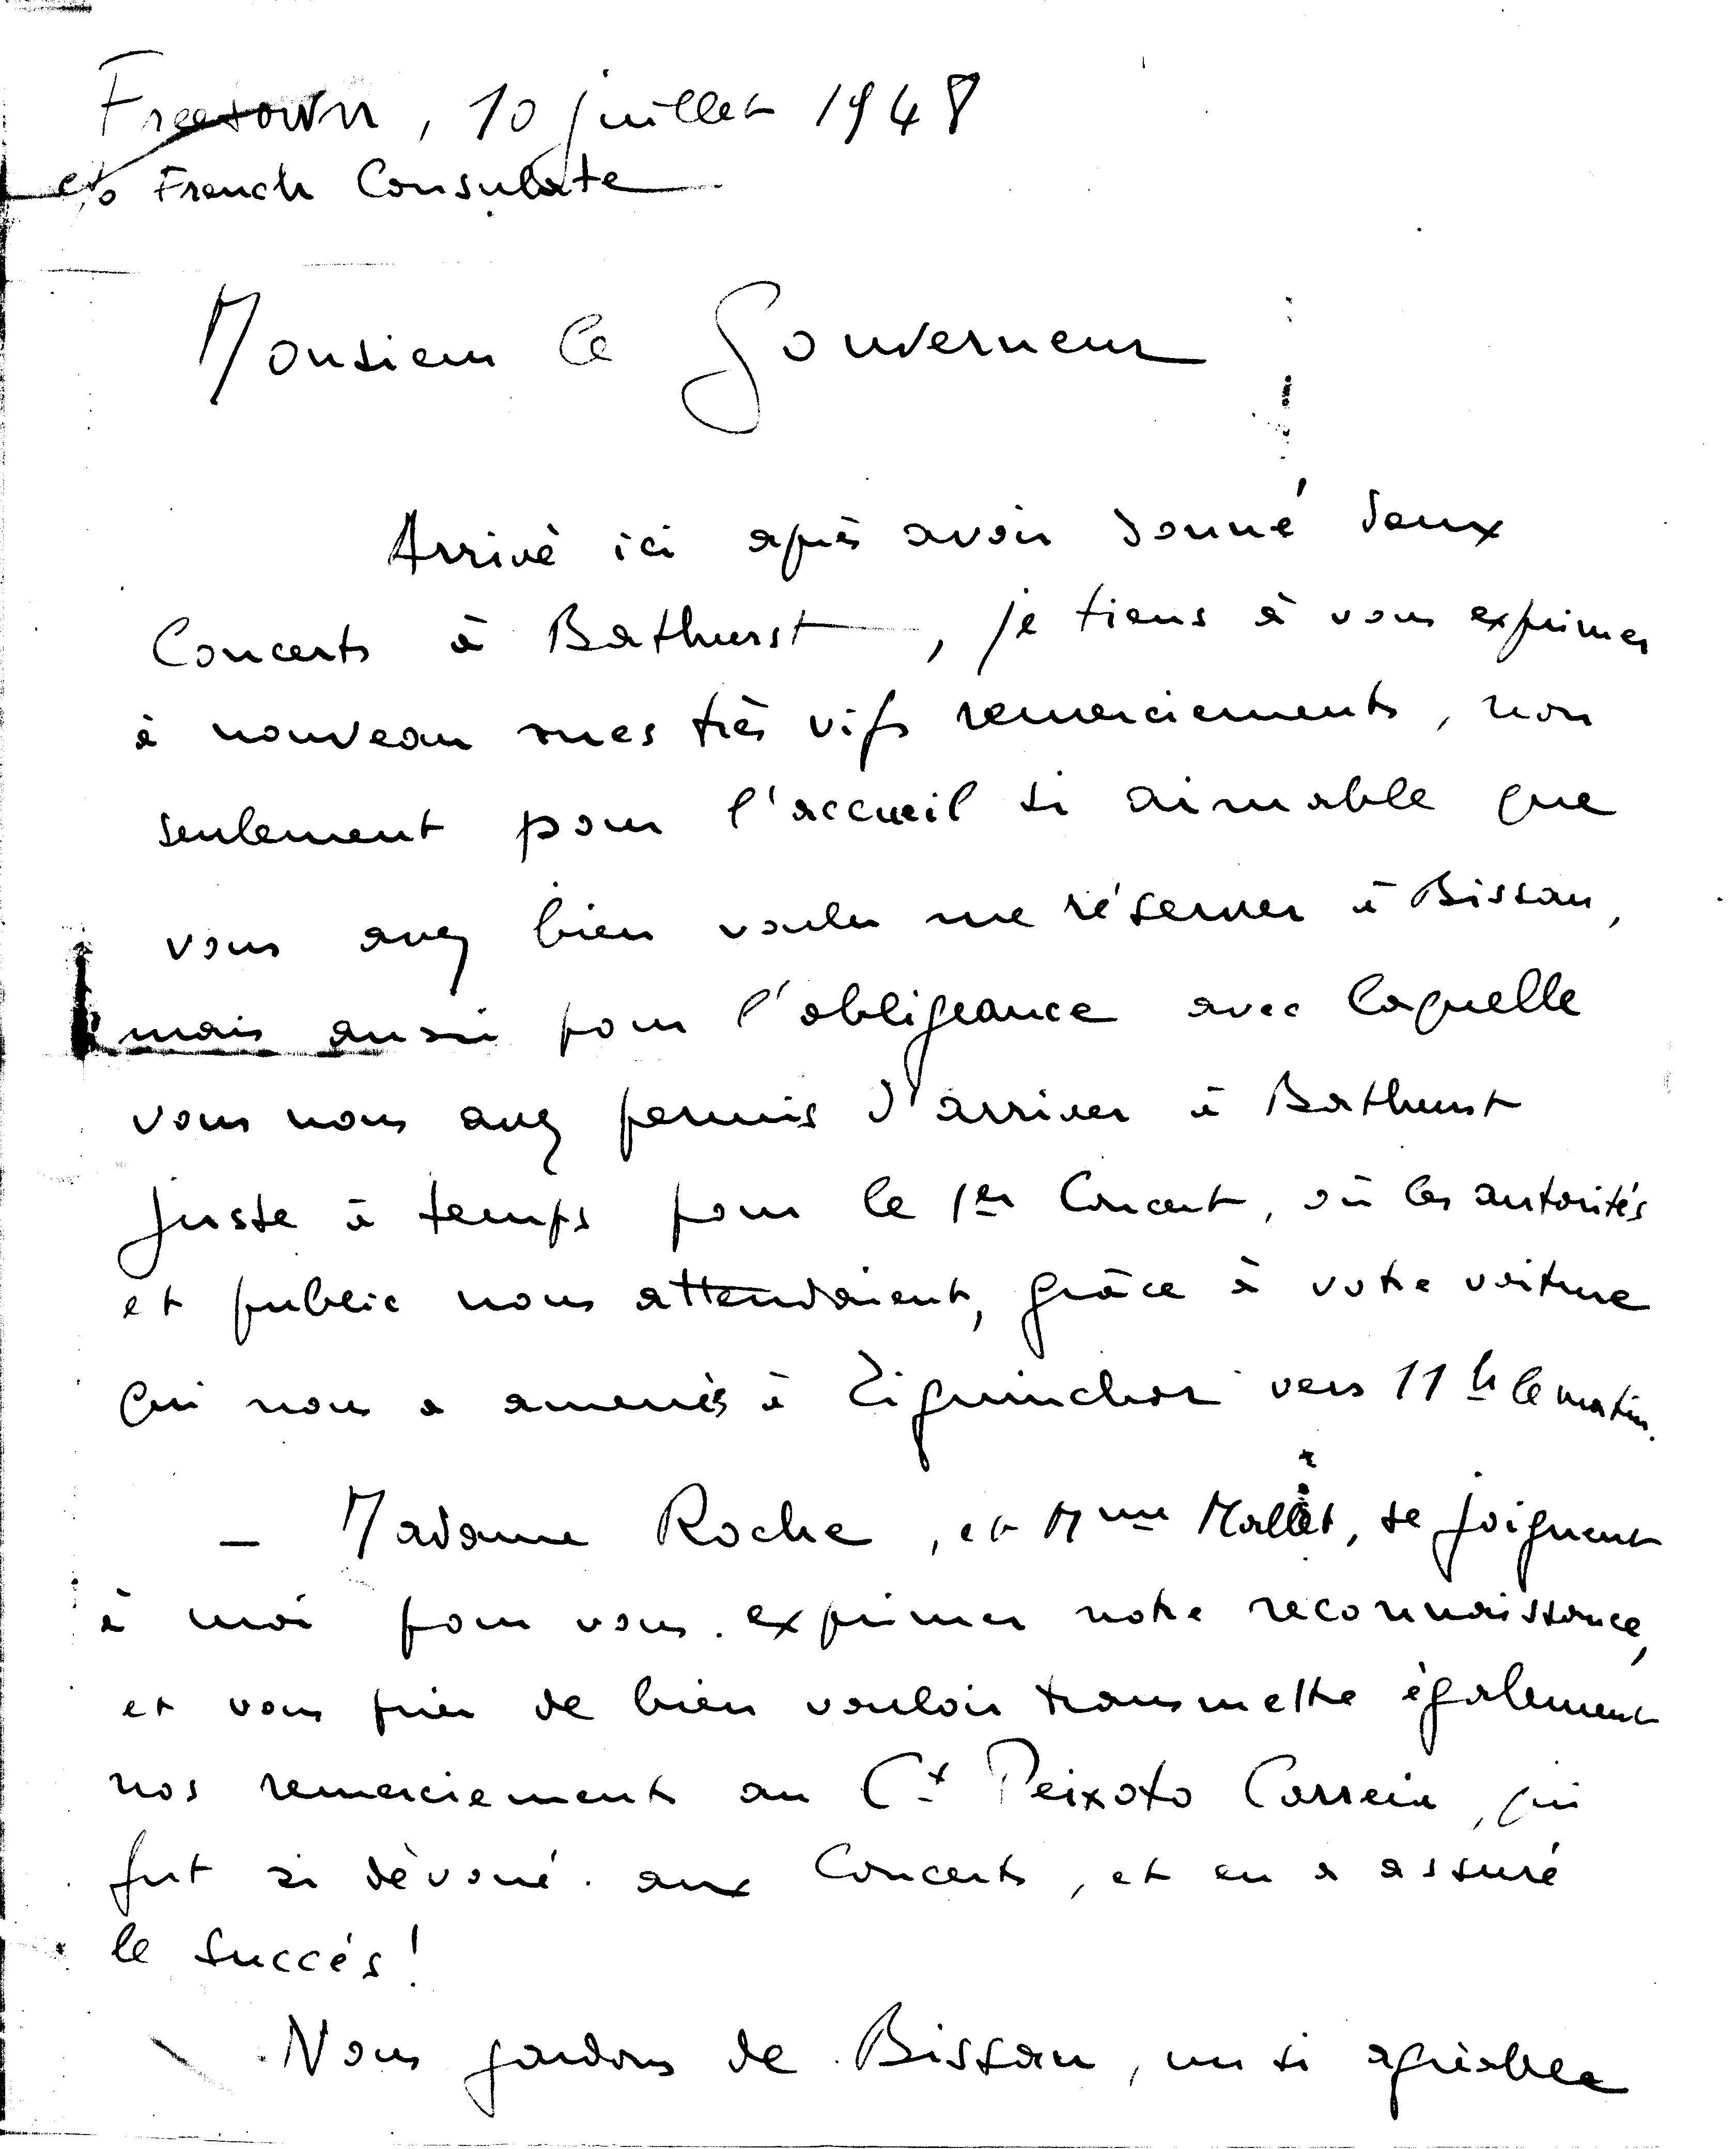 Freetown, 10 juillet 1948
c/o French Consulate
Monsieur le Gouverneur
Arrivé ici après avoir donné deux
Concerts à Bathurst, je tiens à vous exprimer
à nouveau mes très vifs remerciements, non
seulement pour l'accueil si aimable que
vous avez bien voulu me réserver à Bissau,
mais aussi pour l'obligeance avec laquelle
vous nous avez permis d'arriver à Bathurst
juste à temps pour le 1er Concert, où les autorités
et public nous attendaient, grâce à votre voiture
qui nous a amenés à Ziguinchor vers 11 h le matin.
— Madame Roche, et Mme Mallet, se joignent
à moi pour vous exprimer notre reconnaissance,
et vous prier de bien vouloir transmettre également
nos remerciements au Ct Peixoto Correia, qui
fut si dévoué aux Concerts, et en a assuré
le succés!
Nous gardons de Bissau, un si agréable